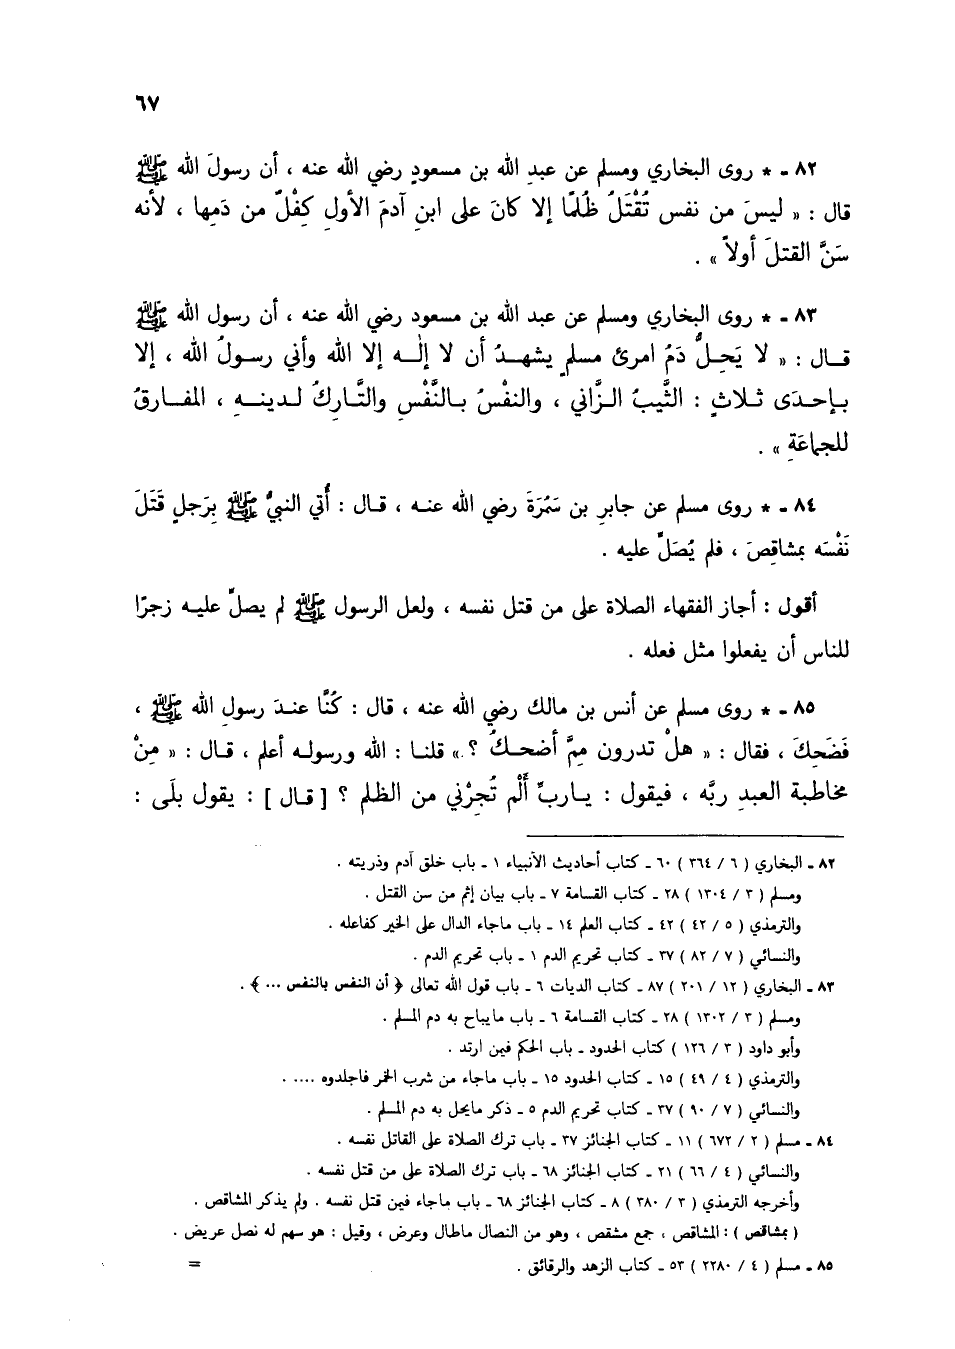 ٦٧
٨٢ - * روى البخاري ومسلم عن عبدِ الله بن مسعودٍ رضي الله عنه ، أن رسولَ الله ﷺ
قال : « ليسَ من نفس تُقْتَلُ ظُلمًا إلا كانَ على ابنِ آدمَ الأولِ كِفْلٌ من دَمِها ، لأنه
سَنَّ القتلَ أولاً » .
٨٣ - * روى البخاري ومسلم عن عبد الله بن مسعود رضي الله عنه ، أن رسول الله ﷺ
قال : « لا يَحِلُّ دَمُ امرئ مسلمٍ يشهدُ أن لا إلٰه إلا الله وأني رسولُ الله ، إلا
بإحدَى ثلاثٍ : الثَّيبُ الزَّاني ، والنفْسُ بالنَّفْسِ والتَّارِكُ لدينهِ ، المفارقُ
للجماعَةِ » .
٨٤ - * روى مسلم عن جابرِ بن سَمُرَةَ رضي الله عنه ، قال : أُتي النبيُّ ﷺ بِرَجلٍ قَتَلَ
نَفْسَه بمشاقِصَ ، فلم يُصَلِّ عليه .
أقول : أجاز الفقهاء الصلاة على من قتل نفسه ، ولعل الرسول ﷺ لم يصلِّ عليه زجرًا
للناس أن يفعلوا مثل فعله .
٨٥ - * روى مسلم عن أنس بن مالك رضي الله عنه ، قال : كُنَّا عندَ رسولِ الله ﷺ ،
فَضَحِكَ ، فقال : « هلْ تدرون مِمَّ أضحكُ ؟ » قلنا : الله ورسوله أعلم ، قال : « مِنْ
مخاطبة العبدِ ربَّه ، فيقول : ياربِّ أَلَمْ تُجِرْني من الظلم ؟ [ قال ] : يقول بلَى :
٨٢ - البخاري ( ٦ / ٣٦٤ ) ٦٠ - كتاب أحاديث الأنبياء ١ - باب خلق آدم وذريته .
ومسلم ( ٣ / ١٣٠٤ ) ٢٨ - كتاب القسامة ٧ - باب بيان إثم من سن القتل .
والترمذي ( ٥ / ٤٢ ) ٤٢ - كتاب العلم ١٤ - باب ماجاء الدال على الخير كفاعله .
والنسائي ( ٧ / ٨٢ ) ٣٧ - كتاب تحريم الدم ١ - باب تحريم الدم .
٨٣ - البخاري ( ١٢ / ٢٠١ ) ٨٧ - كتاب الديات ٦ - باب قول الله تعالى ﴿ أن النفس بالنفس ... ﴾ .
ومسلم ( ٣ / ١٣٠٢ ) ٢٨ - كتاب القسامة ٦ - باب مايباح به دم المسلم .
وأبو داود ( ٣ / ١٢٦ ) كتاب الحدود - باب الحكم فيمن ارتد .
والترمذي ( ٤ / ٤٩ ) ١٥ - كتاب الحدود ١٥ - باب ماجاء من شرب الخمر فاجلدوه .... .
والنسائي ( ٧ / ٩٠ ) ٣٧ - كتاب تحريم الدم ٥ - ذكر مايحل به دم المسلم .
٨٤ - مسلم ( ٢ / ٦٧٢ ) ١١ - كتاب الجنائز ٣٧ - باب ترك الصلاة على القاتل نفسه .
والنسائي ( ٤ / ٦٦ ) ٢١ - كتاب الجنائز ٦٨ - باب ترك الصلاة على من قتل نفسه .
وأخرجه الترمذي ( ٣ / ٣٨٠ ) ٨ - كتاب الجنائز ٦٨ - باب ماجاء فيمن قتل نفسه . ولم يذكر المشاقص .
( بمشاقص ) : المشاقص ، جمع مشقص ، وهو من النصال ماطال وعرض ، وقيل : هو سهم له نصل عريض .
٨٥ - مسلم ( ٤ / ٢٢٨٠ ) ٥٣ - كتاب الزهد والرقائق . =